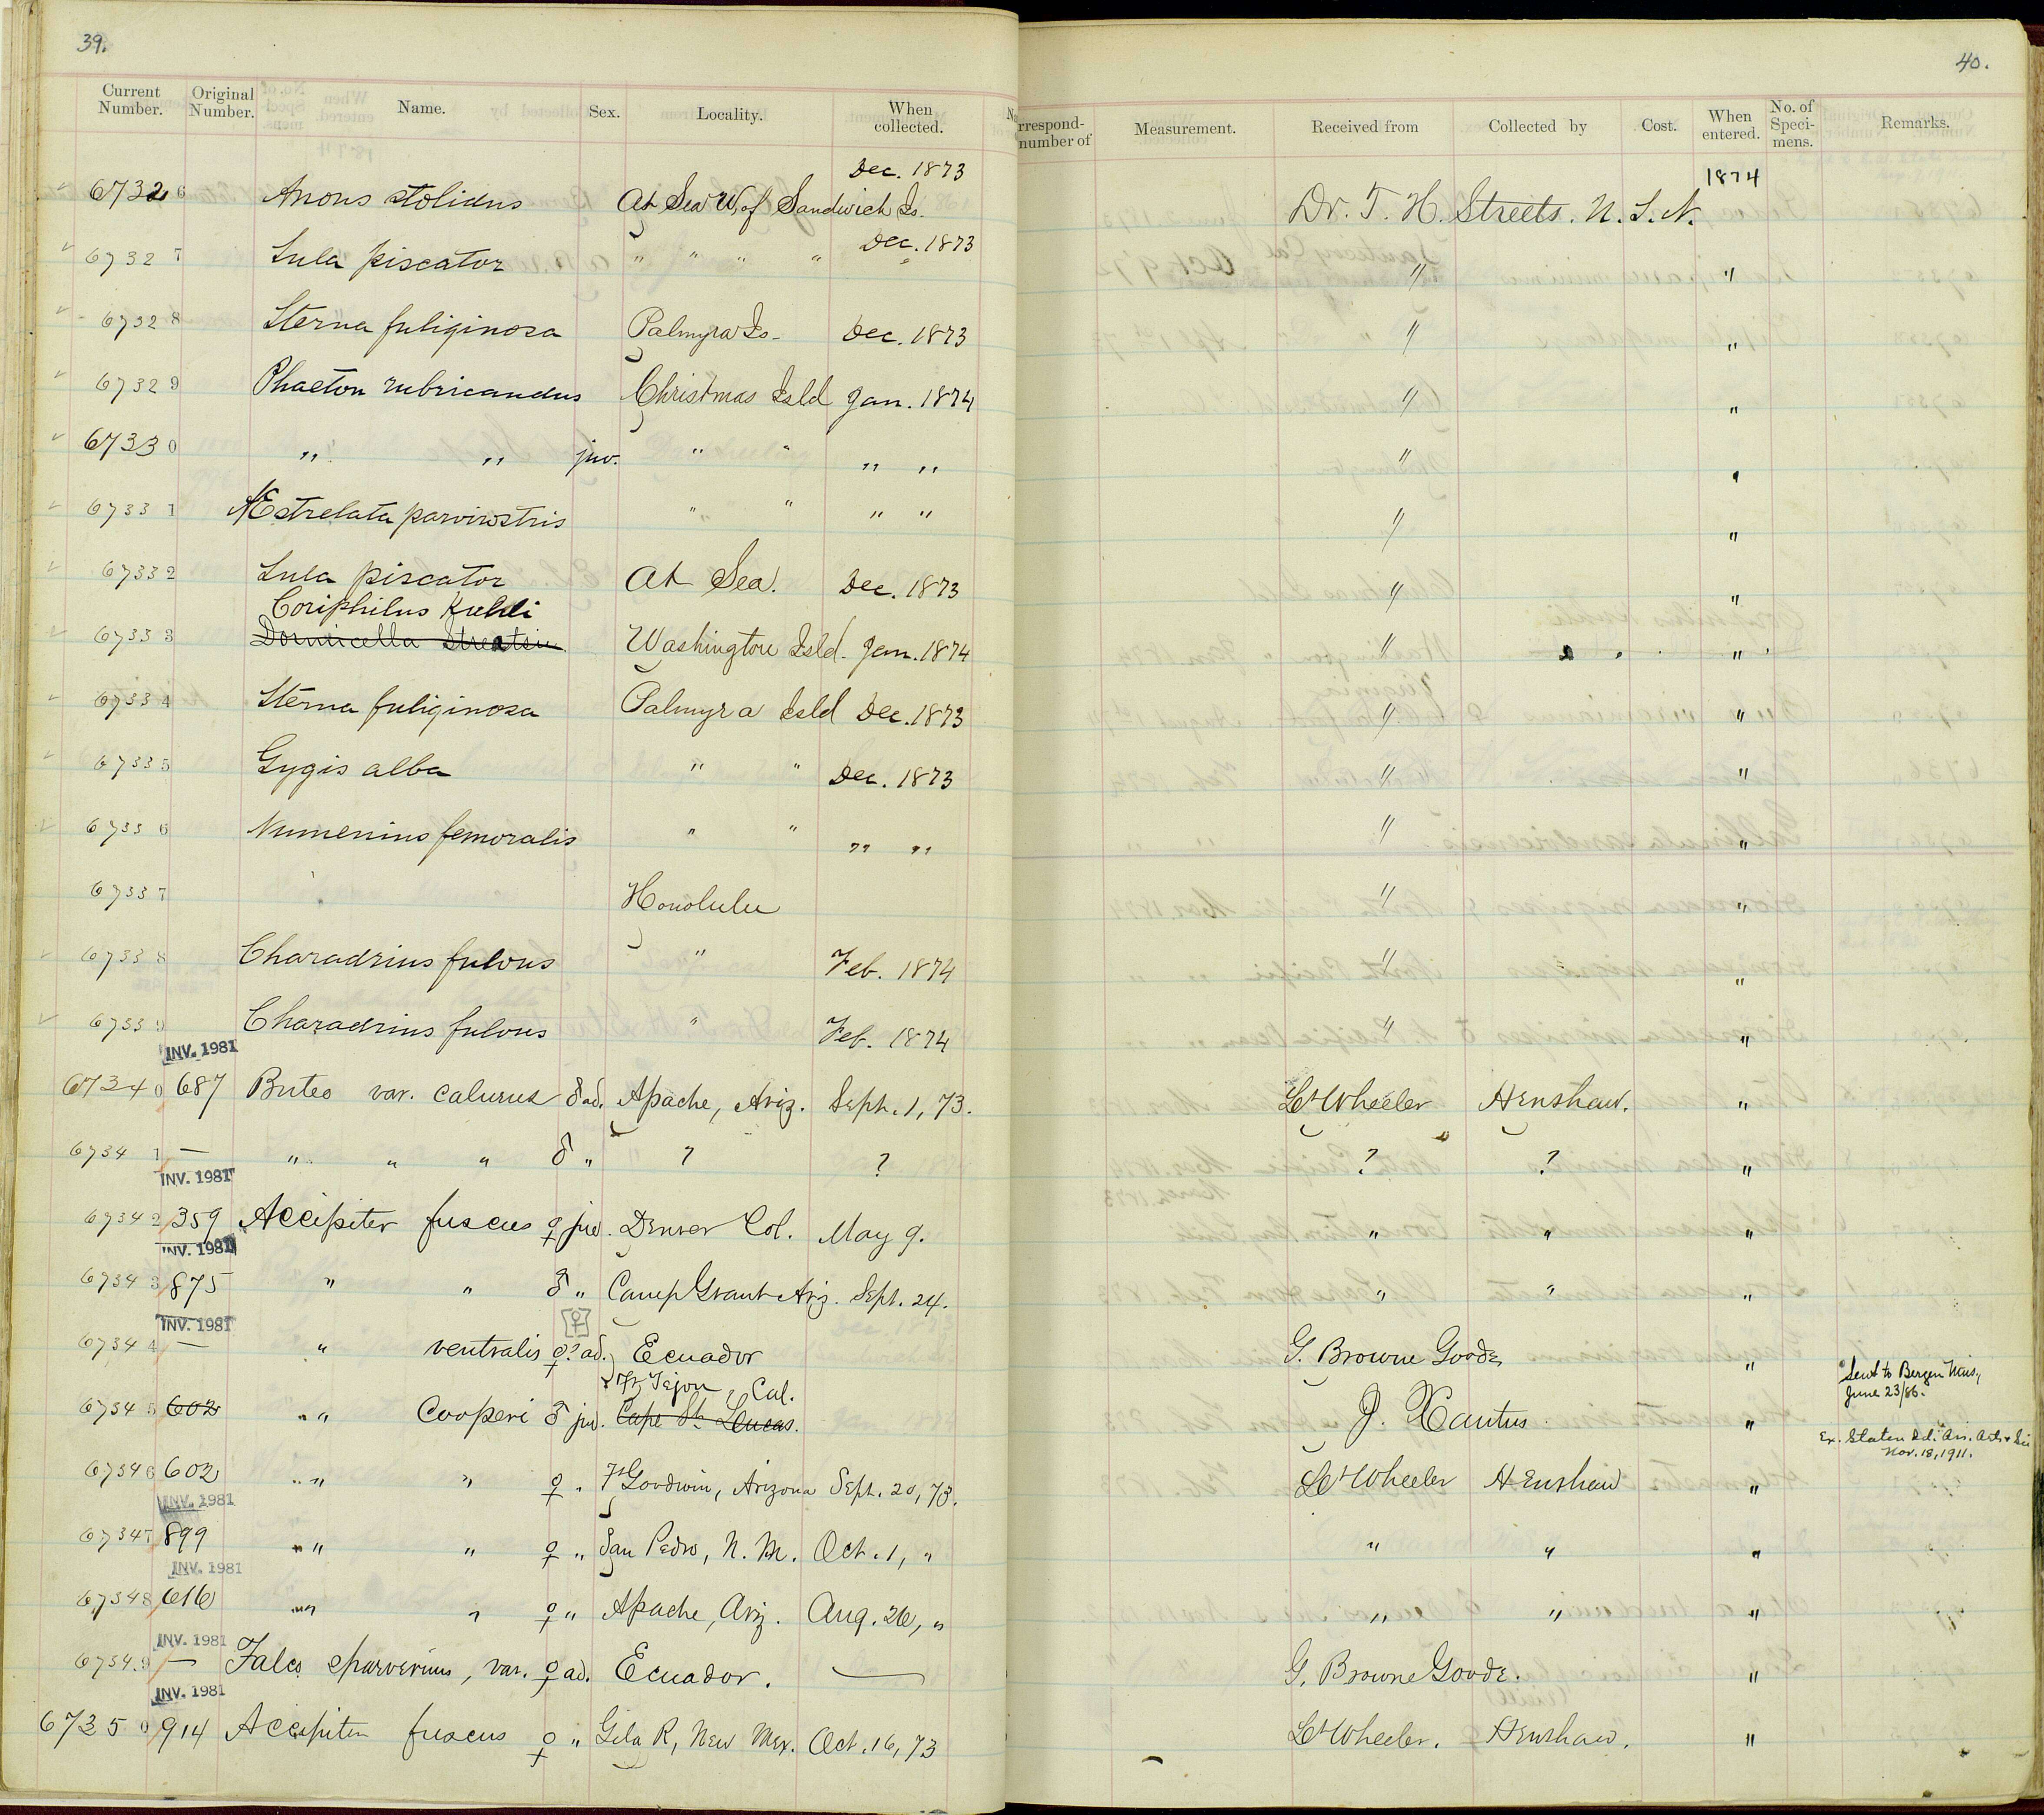 39.
40.
Current Number. Original Number. Name. Sex. Locality. When collected. rrespond- number of Measurement. Received from Collected by Cost. When entered. No. of Speci- mens. Remarks.
Dec. 1873 1874
67326 Anous stolidus At Sea W. of Sandwich Is. Dr. T. H. Streets. U. S. N.
67327 Sula piscator " " " " Dec. 1873 " "
67328 Sterna fuliginosa Palmyra Is. Dec. 1873 " "
67329 Phaeton rubricandus Christmas Isld Jan. 1874 " "
67330 " " juv. " " " " " "
67331 Æstrelata parvirostris " " " " " "
67332 Sula piscator At Sea. Dec. 1873 " "
Coriphilus Kuhli
67333 Domicella Streetsii Washington Isld. Jan. 1874 " "
67334 Sterna fuliginosa Palmyra Isld Dec. 1873 " "
67335 Gygis alba " " Dec. 1873 " "
67336 Numenius femoralis " " " " " "
67337 Honolulu " "
67338 Charadrius fulvus " Feb. 1874 " "
67339 Charadrius fulvus " Feb. 1874 " "
INV. 1981
67340 687 Buteo var. calurus ♂ ad. Apache, Ariz. Sept. 1, 73. Lt Wheeler Henshaw. "
67341 — " " " ♂ " ? ? ? ? "
INV. 1981
67342 359 Accipiter fuscus ♀ juv. Denver Col. May 9. " " "
INV. 1981
67343 875 " " ♂ " Camp Grant Ariz. Sept. 24. " " "
INV. 1981 [♀]
67344 — " ventralis ♀? ad. Ecuador G. Browne Goode "
Ft Tejon, Cal. Sent to Bergen Mus, June 23/86.
67345 602 " " Cooperi ♂ juv. Cape St. Lucas. J. Xantus "
Ex. Staten Isl. Ass. Arts & Sci
Nov. 18, 1911.
67346 602 " " ♀ " Ft Goodwin, Arizona Sept. 20, 73. Lt Wheeler Henshaw "
INV. 1981
67347 899 " " ♀ " San Pedro, N. M. Oct. 1, " " " "
INV. 1981
67348 616 " " ♀ " Apache, Ariz. Aug. 26, " " " "
INV. 1981
67349 — Falco sparverius, var. ♀ ad. Ecuador. — G. Browne Goode. "
INV. 1981
67350 914 Accipiter fuscus ♀ " Gila R, New Mex. Oct. 16, 73 Lt Wheeler. Henshaw. "